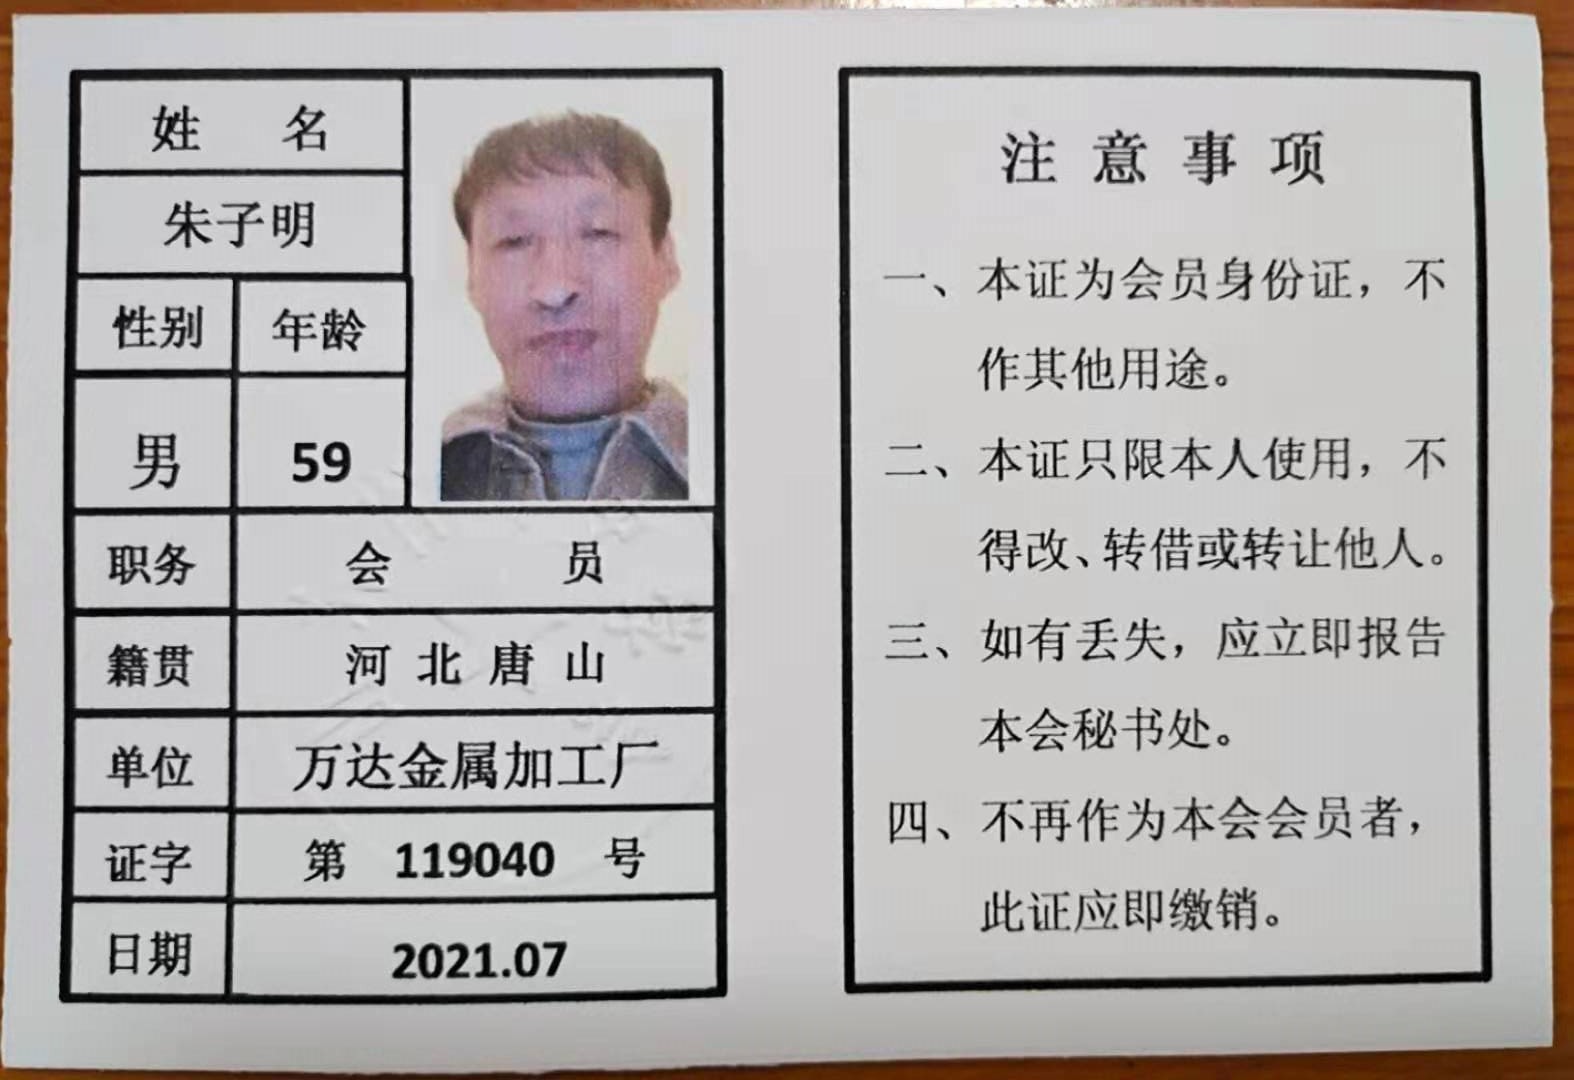 姓 名
朱子明
性别 年龄
男 59
职务 会 员
籍贯 河 北 唐 山
单位 万达金属加工厂
证字 第 119040 号
日期 2021.07
注 意 事 项
一、本证为会员身份证，不
作其他用途。
二、本证只限本人使用，不
得改、转借或转让他人。
三、如有丢失，应立即报告
本会秘书处。
四、不再作为本会会员者，
此证应即缴销。